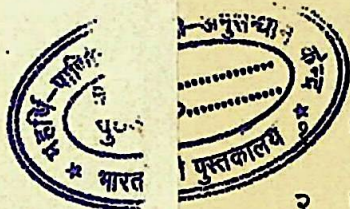 महर्षि-पाणि
-अनुसन्धान केन्द्र
पु०
भारत
पुस्तकालय
२